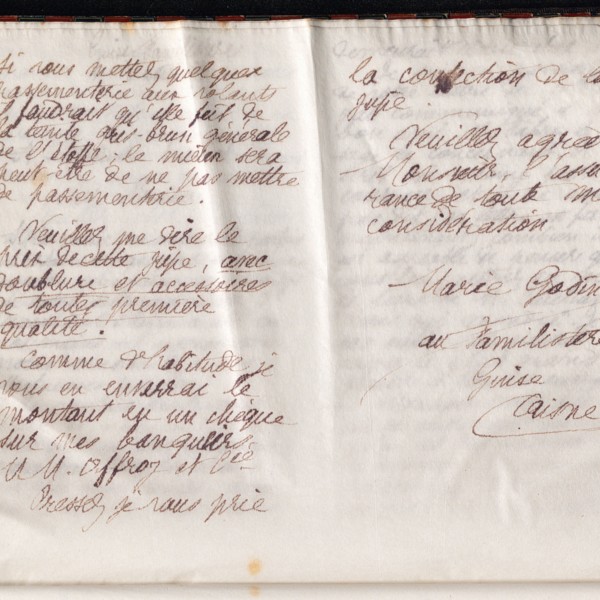 si vous mettez quelques
passementerie aux volants
il faudrait qu'elle fût de
la teinte gris-brun générale
de l'étoffe; le mieux sera
peut-être de ne pas mettre
de passementerie.
Veuillez me dire le
prix de cette jupe, avec
doublure et accessoires
de toute première
qualité.
Comme d'habitude je
vous en enverrai le
montant en un chèque
sur mes banquiers
M.M. Offroy et Cie
Pressez je vous prie
la confection de la
jupe.
Veuillez agréer
Monsieur, l'assu
rance de toute m
considération
Marie Godin
au Familistère
Guise
Aisne